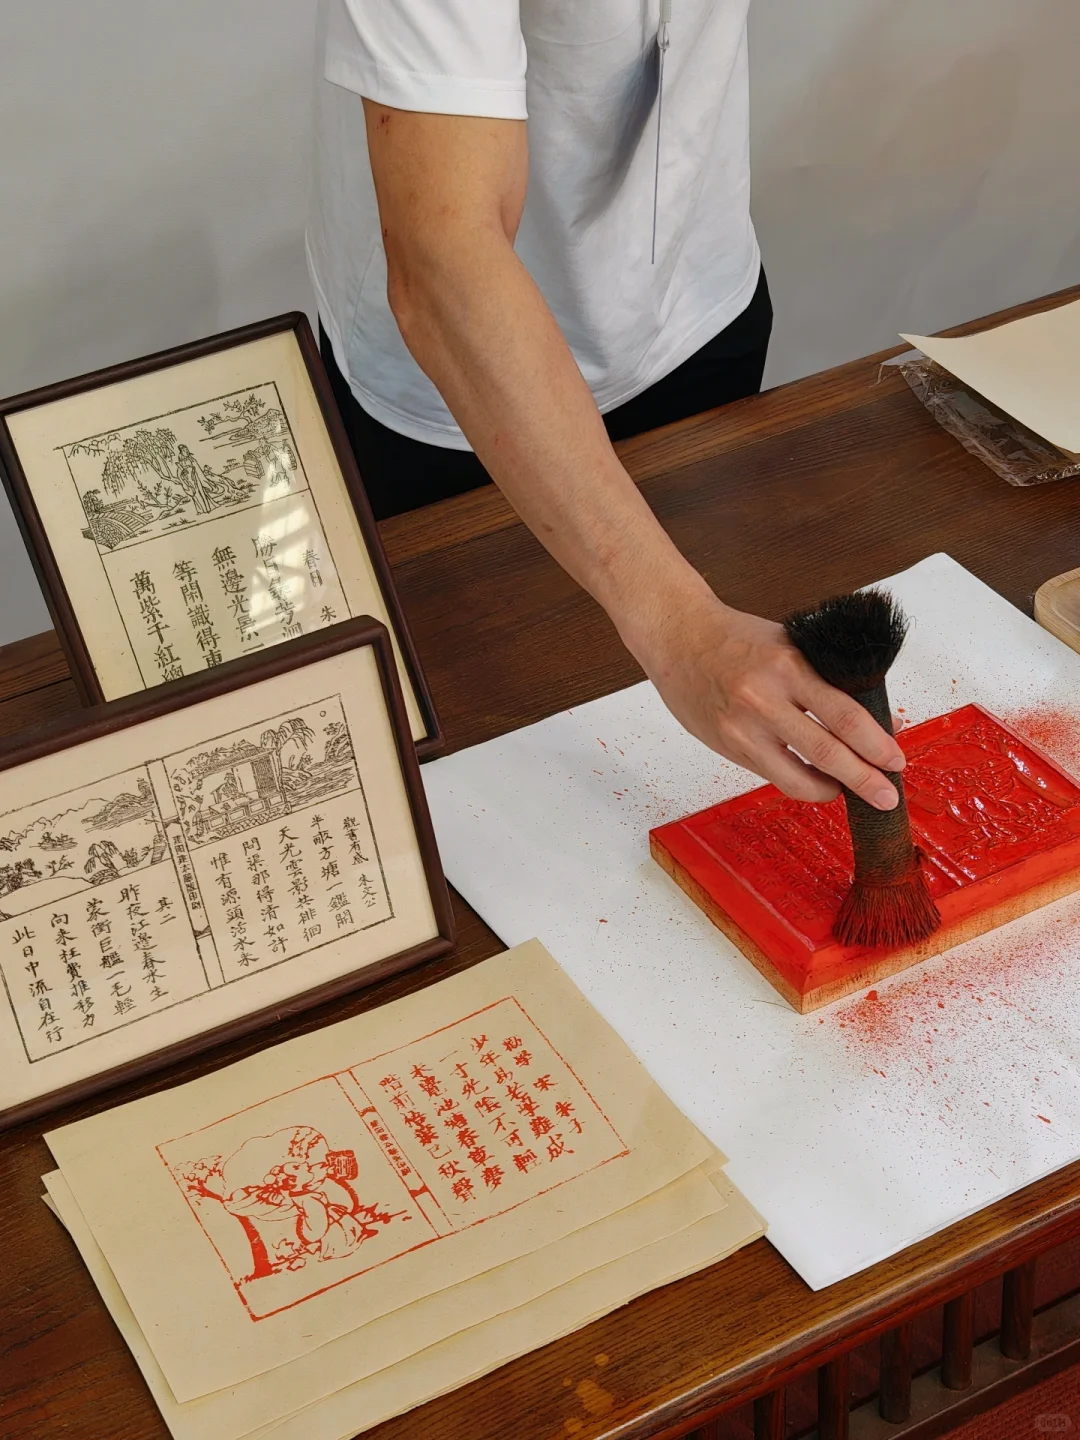 春日 朱
勝日尋芳泗
無邊光景一
等閑識得東
萬紫千紅總
觀書有感 朱文公
半畝方塘一鑑開
天光雲影共徘徊
問渠那得清如許
惟有源頭活水来
其二
昨夜江邊春水生
蒙衝巨艦一毛輕
向来枉費推移力
此日中流自在行
勸學 宋 朱子
少年易老學難成
一寸光陰不可輕
未覺池塘春草夢
階前梧葉已秋聲